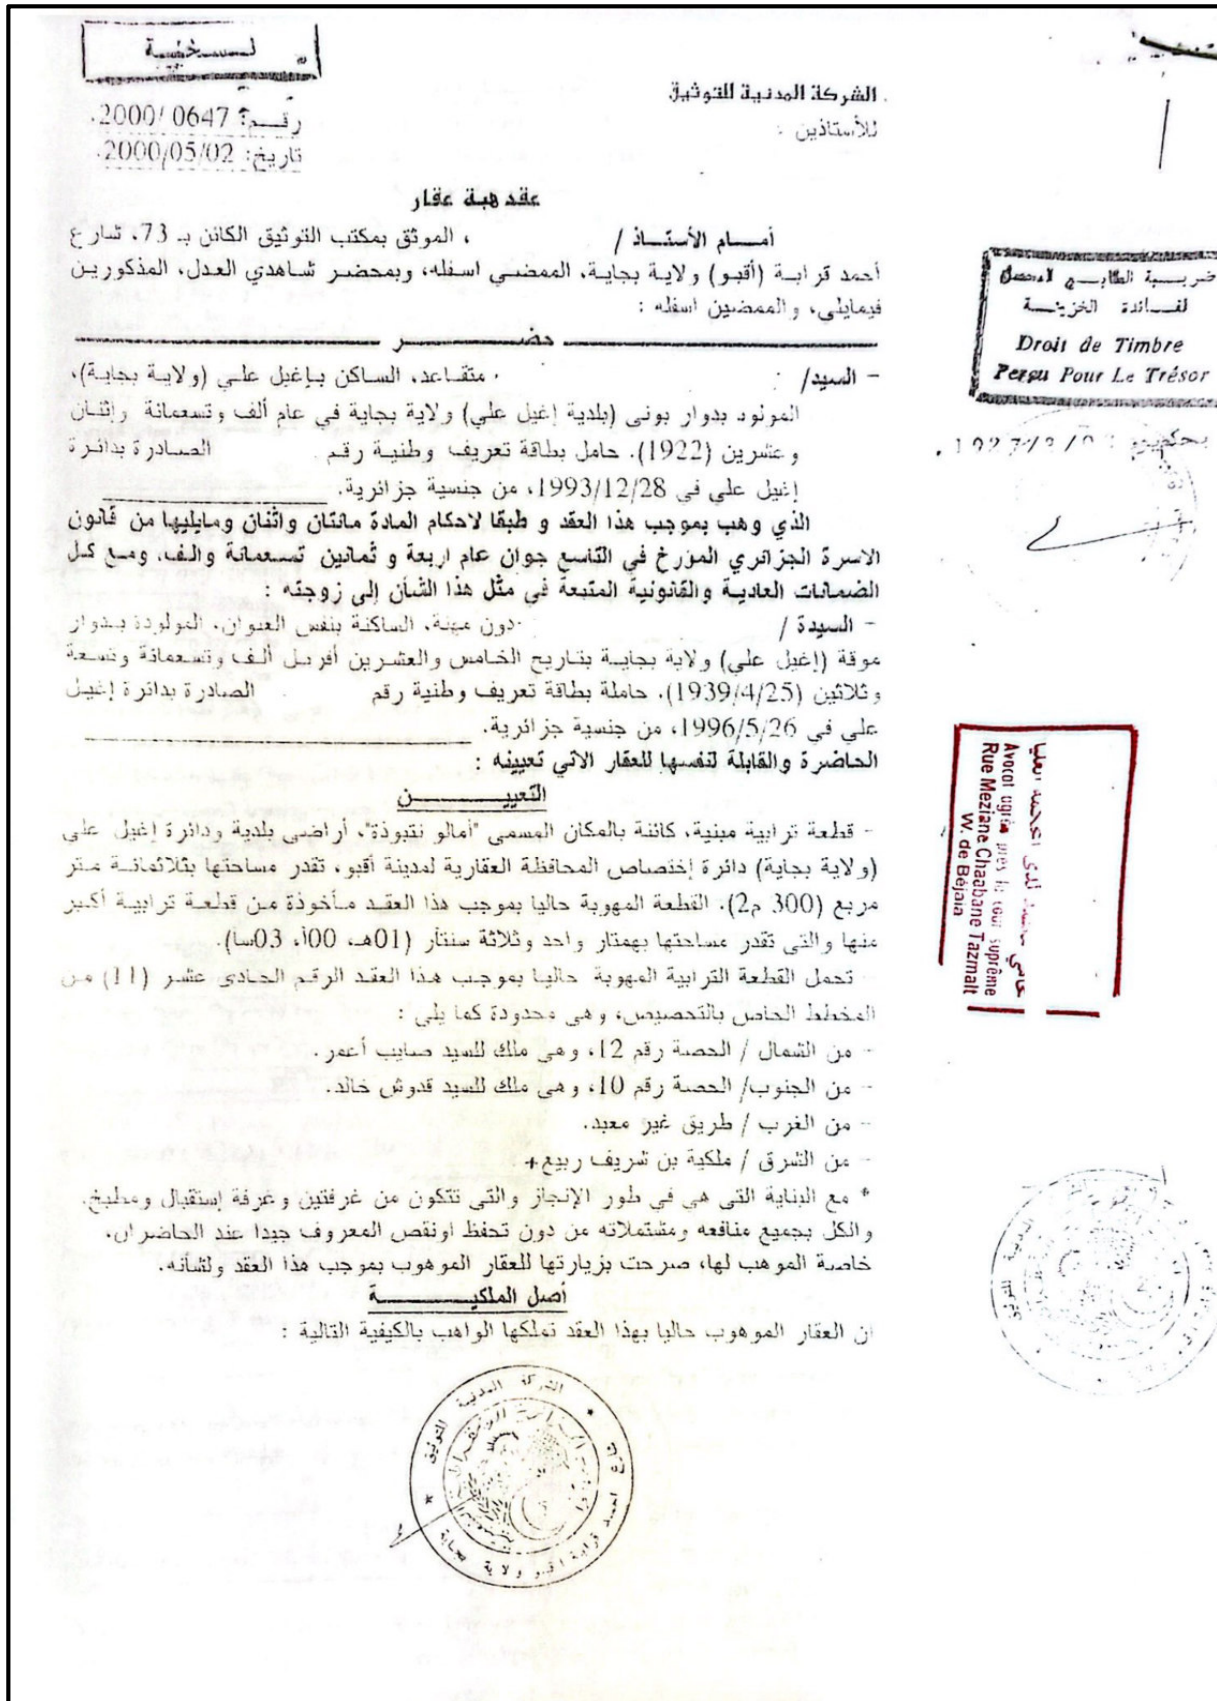 نسخة
رقم: 2000/0647.
تاريخ: 2000/05/02.
الشركة المدنية للتوثيق
للأستاذين :
عقد هبة عقار
أمـــام الأستـــاذ / ، الموثق بمكتب التوثيق الكائن بـ 73، شارع
أحمد قرابة (أقبو) ولاية بجاية، الممضي اسفله، وبمحضر شاهدي العدل، المذكورين
فيمايلي، والممضين اسفله :
حضـــــر
- السيد/ ، متقاعد، الساكن بإغيل علي (ولاية بجاية)،
المولود بدوار بونى (بلدية إغيل علي) ولاية بجاية في عام ألف وتسعمائة وإثنان
وعشرين (1922). حامل بطاقة تعريف وطنية رقم الصادرة بدائرة
إغيل علي في 1993/12/28، من جنسية جزائرية.
الذي وهب بموجب هذا العقد و طبقا لاحكام المادة مائتان واثنان ومايليها من قانون
الاسرة الجزائري المؤرخ في التاسع جوان عام اربعة و ثمانين تسعمائة والف، ومع كل
الضمانات العادية والقانونية المتبعة في مثل هذا الشأن إلى زوجته :
- السيدة / دون مهنة، الساكنة بنفس العنوان، المولودة بدوار
موقة (إغيل علي) ولاية بجاية بتاريخ الخامس والعشرين أفريل ألف وتسعمائة وتسعة
وثلاثين (1939/4/25). حاملة بطاقة تعريف وطنية رقم الصادرة بدائرة إغيل
علي في 1996/5/26، من جنسية جزائرية.
الحاضرة والقابلة لنفسها للعقار الاتي تعيينه :
التعييـــــن
- قطعة ترابية مبنية، كائنة بالمكان المسمى "أمالو نتبوذة"، أراضى بلدية ودائرة إغيل على
(ولاية بجاية) دائرة إختصاص المحافظة العقارية لمدينة أقبو، تقدر مساحتها بثلاثمائة متر
مربع (300 م2). القطعة الموهوبة حاليا بموجب هذا العقد مأخوذة من قطعة ترابية أكبر
منها والتى تقدر مساحتها بهكتار واحد وثلاثة سنتار (01هـ، 00أ، 03سا).
- تحمل القطعة الترابية المهوبة حاليا بموجب هذا العقد الرقم الحادى عشر (11) من
المخطط الخاص بالتحصيص، وهى محدودة كما يلى :
- من الشمال / الحصة رقم 12، وهى ملك للسيد صايب أعمر.
- من الجنوب/ الحصة رقم 10، وهى ملك للسيد قدوش خالد.
- من الغرب / طريق غير معبد.
- من الشرق / ملكية بن شريف ربيع+.
* مع البناية التى هي في طور الإنجاز والتى تتكون من غرفتين وغرفة إستقبال ومطبخ.
والكل بجميع منافعه ومشتملاته من دون تحفظ اونقص المعروف جيدا عند الحاضران،
خاصة الموهب لها، صرحت بزيارتها للعقار الموهوب بموجب هذا العقد ولشانه.
أصل الملكيـــــة
ان العقار الموهوب حاليا بهذا العقد تملكها الواهب بالكيفية التالية :
ضريبة الطابع المحصل
لفـــائدة الخزينـــة
Droit de Timbre
Perçu Pour Le Trésor
Avocat agréé près la cour suprême
Rue Meziane Chaabane Tazmalt
W. de Béjaia
الشركة المدنية للتوثيق